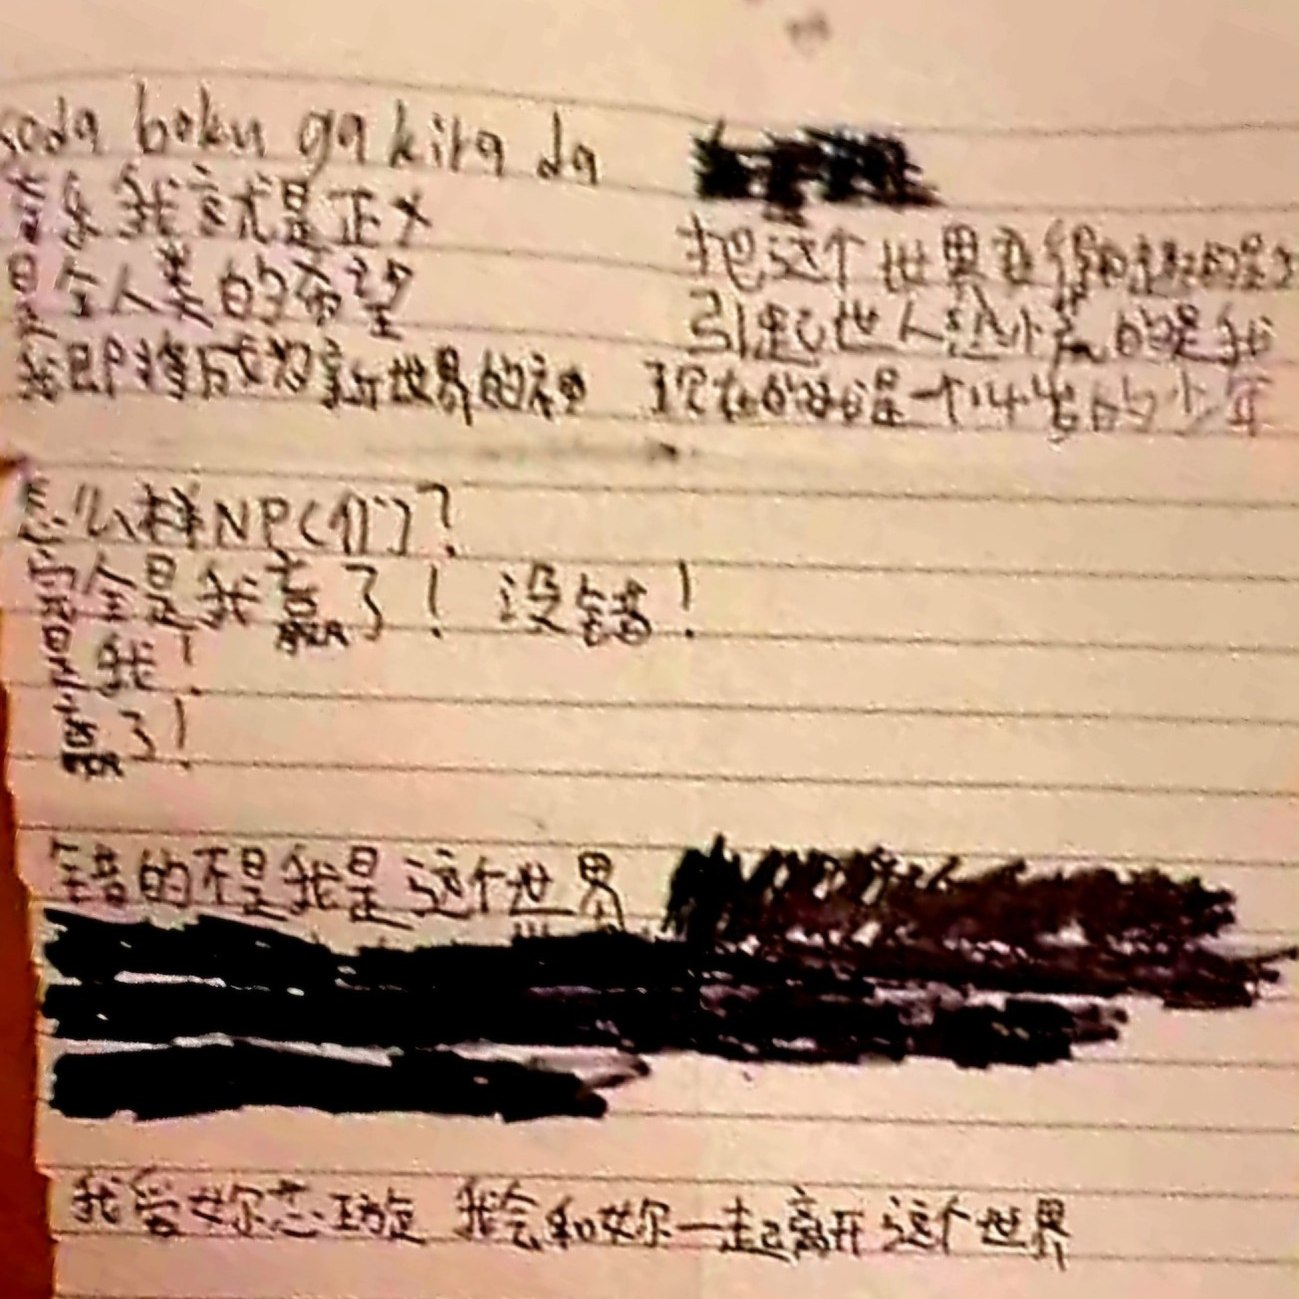 soda boku ga kira da
我就是正义
是全人类的希望
我即将成为新世界的神
把这个世界变得的是
引起世人的是我
现在的我是一个14岁的少年
怎么样NPC们?
完全是我赢了! 没错!
是我!
赢了!
错的不是我是这个世界
我爱妳 我会和妳一起离开这个世界